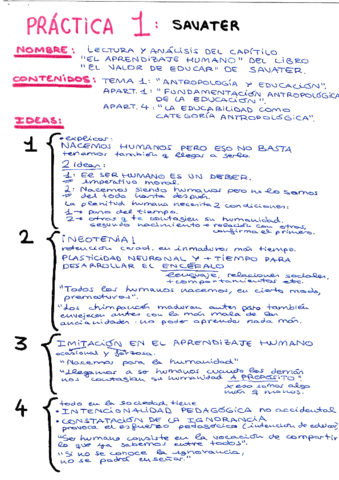 PRÁCTICA 1: SAVATER
NOMBRE: LECTURA Y ANÁLISIS DEL CAPÍTULO
"EL APRENDIZAJE HUMANO" DEL LIBRO
"EL VALOR DE EDUCAR" DE SAVATER.
CONTENIDOS: TEMA 1: "ANTROPOLOGÍA Y EDUCACIÓN".
APART. 1: "FUNDAMENTACIÓN ANTROPOLÓGICA
DE LA EDUCACIÓN".
APART. 4: "LA EDUCABILIDAD COMO
CATEGORÍA ANTROPOLÓGICA".
IDEAS:
1
explicar:
NACEMOS HUMANOS PERO ESO NO BASTA
tenemos también q llegar a serlo
2 ideas:
1: ER SER HUMANO ES UN DEBER.
imperativo moral.
2: Nacemos siendo humanos pero no lo somos
del todo hasta después.
La plenitud humana necesita 2 condiciones:
1→ paso del tiempo.
2→ otros q te contagien su humanidad.
segundo nacimiento → relación con otros,
confirma el primero.
2
¡NEOTENIA!
retención caract. en inmaduros más tiempo.
PLASTICIDAD NEURONAL Y + TIEMPO PARA
DESARROLLAR EL ENCÉFALO
lenguaje, relaciones sociales,
comportamientos etc.
"Todos los humanos nacemos, en cierto modo,
prematuros".
"Los chimpancés maduran antes pero también
envejecen antes con lo más malo de las
ancianidades: no poder aprender nada más.
3
IMITACIÓN EN EL APRENDIZAJE HUMANO
ocasional y forzosa.
"Nacemos para la humanidad"
"Llegamos a ser humanos cuando los demás
nos contagian su humanidad A PROPÓSITO"
4
todo en la sociedad tiene
• INTENCIONALIDAD PEDAGÓGICA no accidental
• CONSTATACIÓN DE LA IGNORANCIA
provoca el esfuerzo pedagógico (intención de educar)
"Ser humano consiste en la vocación de compartir
lo que ya sabemos entre todos".
"Si no se conoce la ignorancia,
no se podrá enseñar."